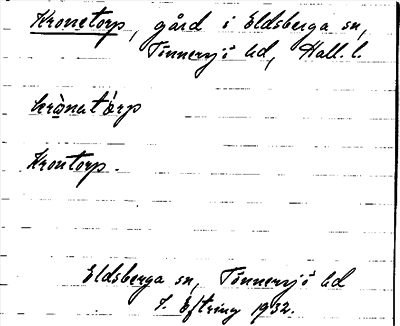 Kronetorp, gård i Eldsberga sn,
Tönnersjö hd, Hall. l.
krònatòrp
Krontorp.
Eldsberga sn, Tönnersjö hd
J. Eftring 1932.